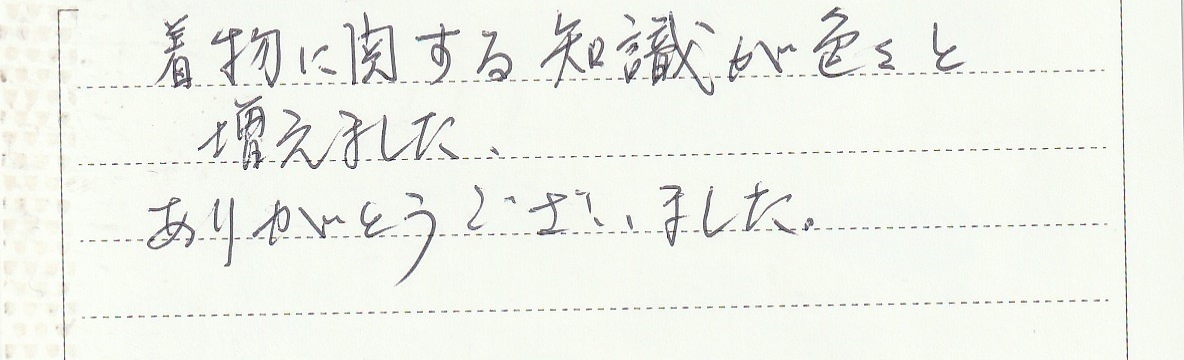 着物に関する知識が色々と
増えました、
ありがとうございました。